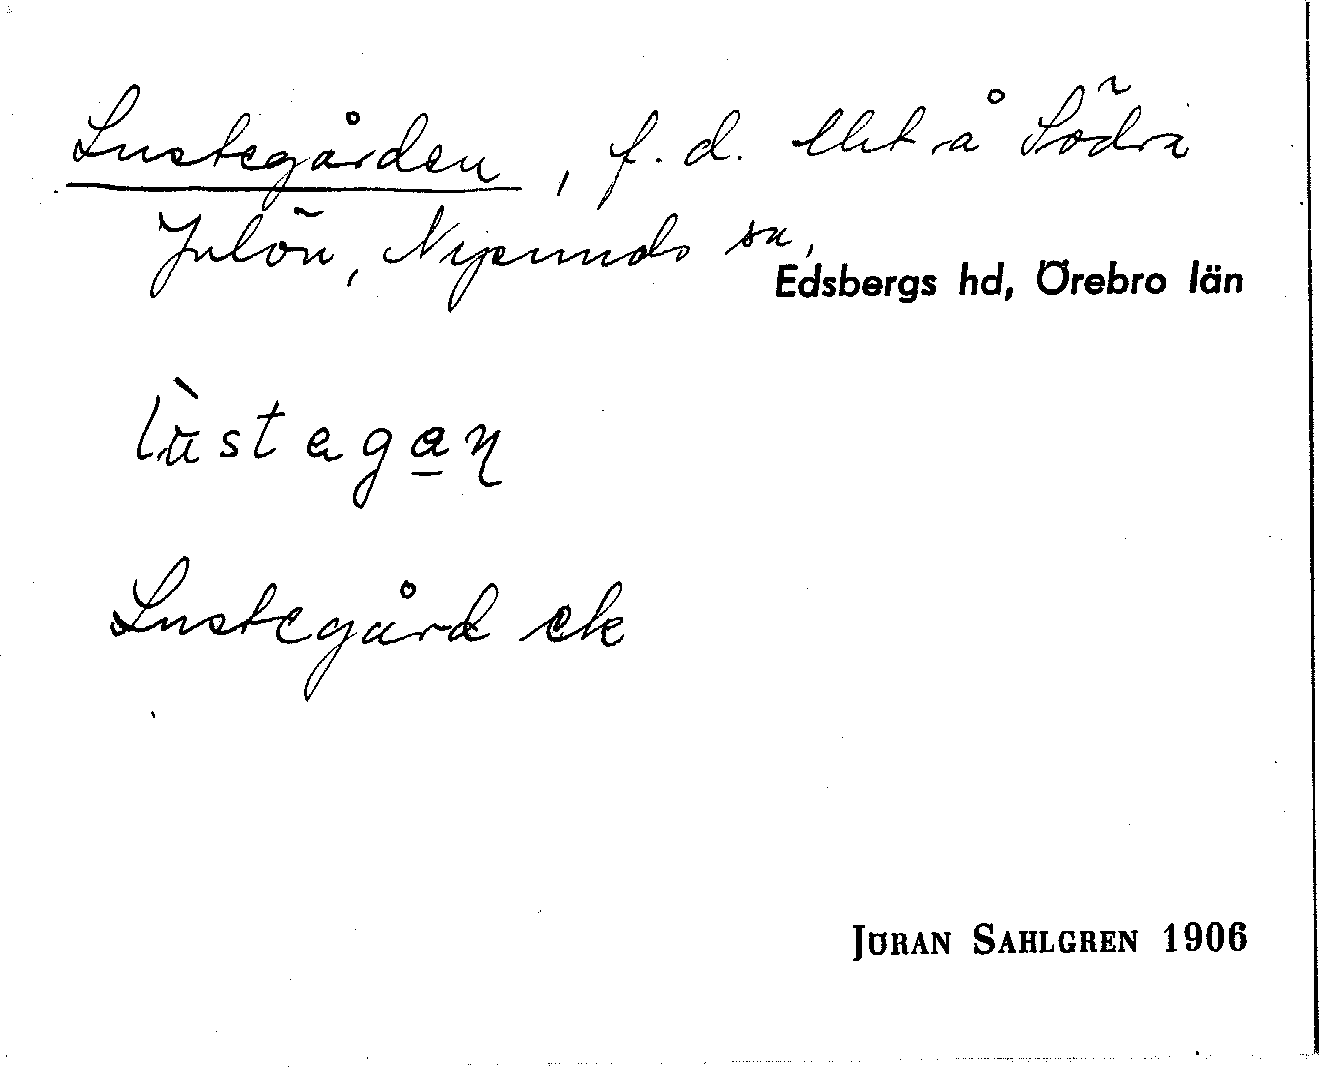 Lustegården, f.d. lht å Södra
Julön, Nysunds sn,
Edsbergs hd, Örebro län
Lustegård ek
JÖRAN SAHLGREN 1906